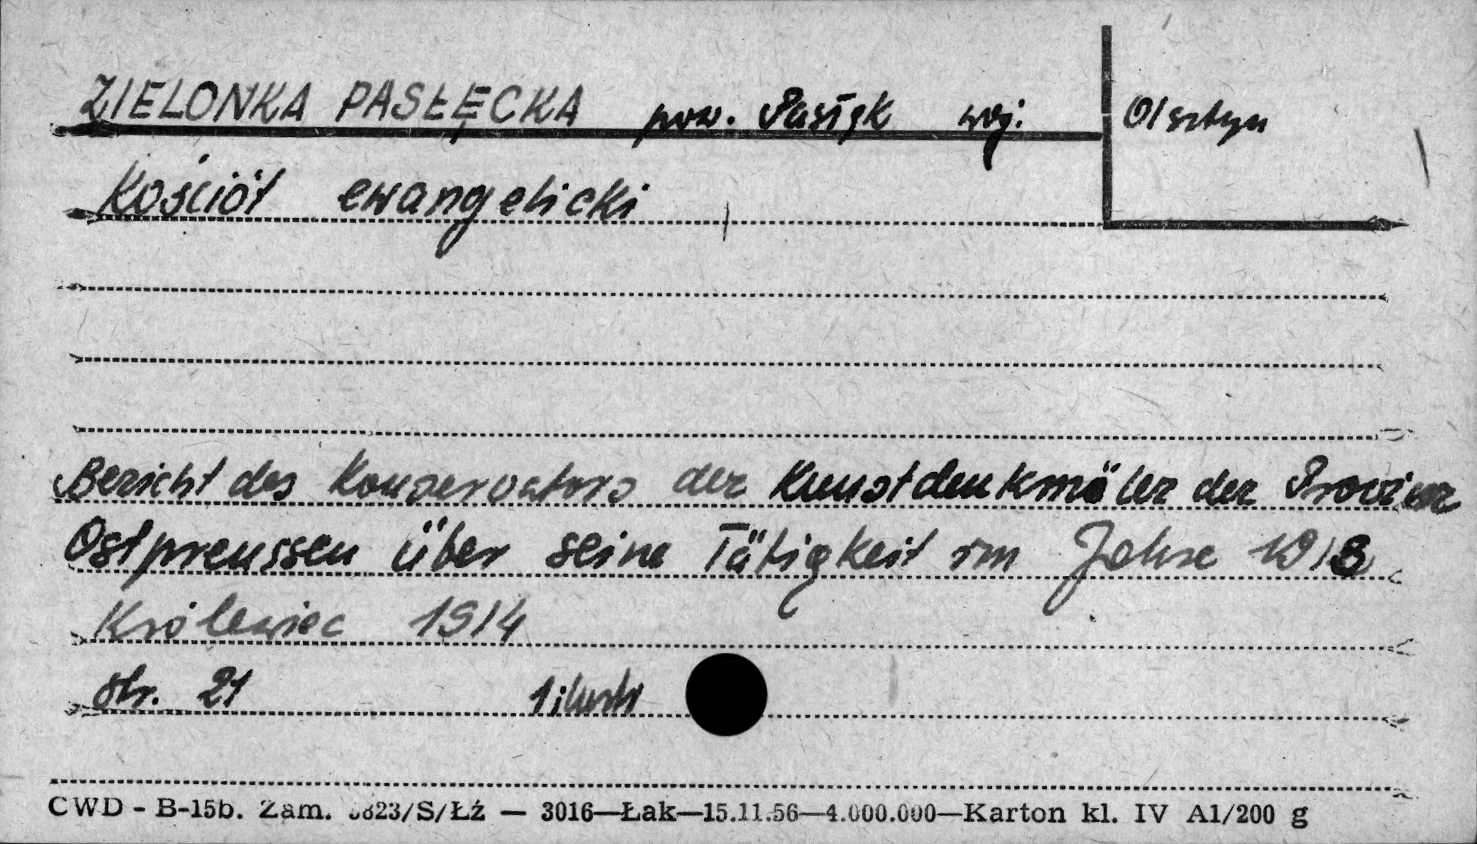 ZIELONKA PASŁĘCKA pow. Pasłęk woj. Olsztyn
Kościół ewangelicki
Bericht des Konservators der Kunstdenkmäler der Provinz
Ostpreussen über seine Tätigkeit im Jahre 1913
Królewiec 1914
str. 21 1 ilustr
CWD - B-15b. Zam. 8823/S/Łż — 3016—Łak—15.11.56—4.000.000—Karton kl. IV A1/200 g